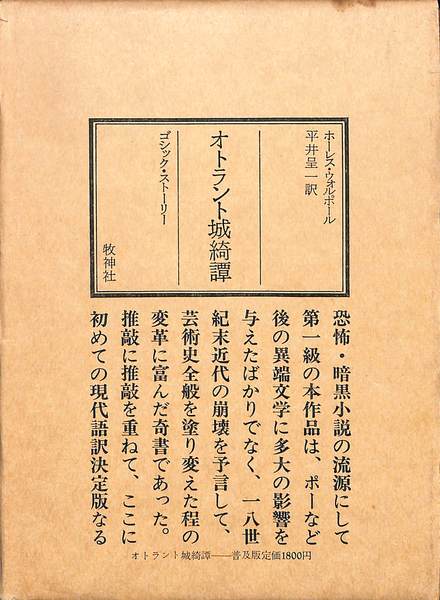 ホーレス・ウォルポール
平井呈一訳
オトラント城綺譚
ゴシック・ストーリー
牧神社
恐怖・暗黒小説の流源にして
第一級の本作品は、ポーなど
後の異端文学に多大の影響を
与えたばかりでなく、一八世
紀末近代の崩壊を予言して、
芸術史全般を塗り変えた程の
変革に富んだ奇書であった。
推敲に推敲を重ねて、ここに
初めての現代語訳決定版なる
オトラント城綺譚——普及版定価1800円